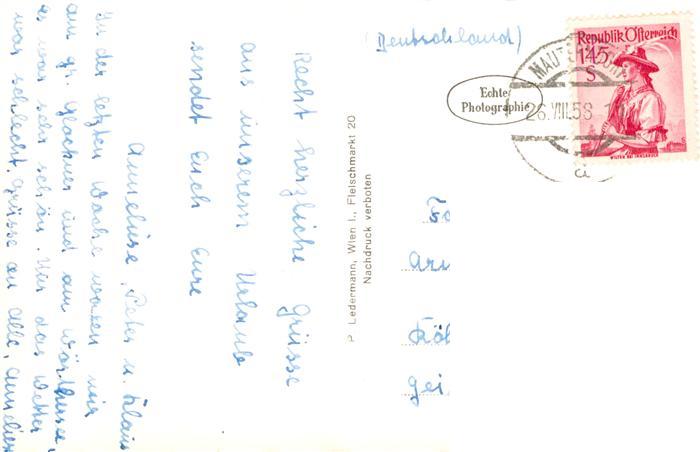 Recht herzliche Grüsse
aus unserem Urlaub
sendet Euch Eure
Anneliese, Peter u. Klaus
In der letzten Woche waren wir
am gr. Glockner und am Wörthersee,
es war sehr schön. Nur das Wetter
war schlecht. Grüsse an Alle, Annelies
P. Ledermann, Wien I., Fleischmarkt 20
Nachdruck verboten
(Deutschland)
Echte
Photographie
Republik Österreich
1·45
S
26.VIII.58